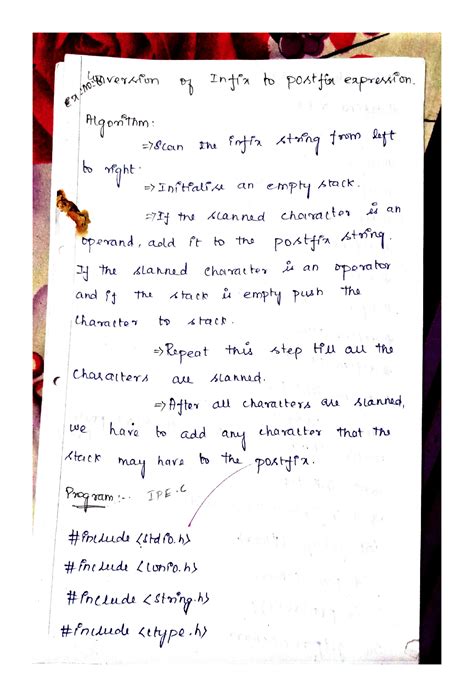 Ex:no:
Conversion of Infix to postfix expression.
Algorithm:
=>Scan the infix string from left
to right.
=> Initialise an empty stack.
=>If the scanned character is an
operand, add it to the postfix string.
If the scanned character is an operator
and if the stack is empty push the
character to stack.
=>Repeat this step till all the
characters are scanned.
=>After all characters are scanned,
we have to add any character that the
stack may have to the postfix.
Program:- IPE.C
#include <stdio.h>
#include <conio.h>
#include <string.h>
#include <ctype.h>